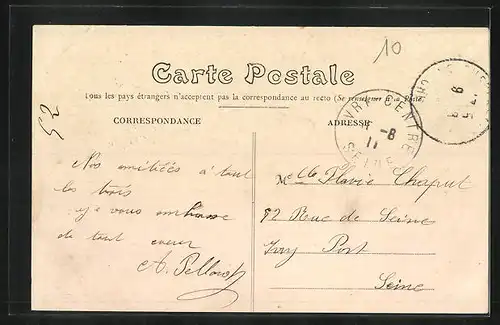 10
Carte Postale
Tous les pays étrangers n'acceptent pas la correspondance au recto (Se renseigner à la Poste)
CORRESPONDANCE
ADRESSE
IVRY CENTRE
-8
11
SEINE
52
Nos amitiées à tout
les trois
je vous embrasse
de tout coeur
Melle Flavie Chaput
82 Rue de Seine
Ivry Port
Seine